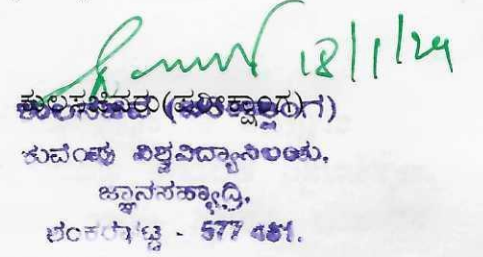 18/1/24
ಕುಲಸಚಿವರು (ಪರೀಕ್ಷಾಂಗ)
ಕುವೆಂಪು ವಿಶ್ವವಿದ್ಯಾನಿಲಯ,
ಜ್ಞಾನಸಹ್ಯಾದ್ರಿ,
ಶಂಕರಘಟ್ಟ - 577 451.